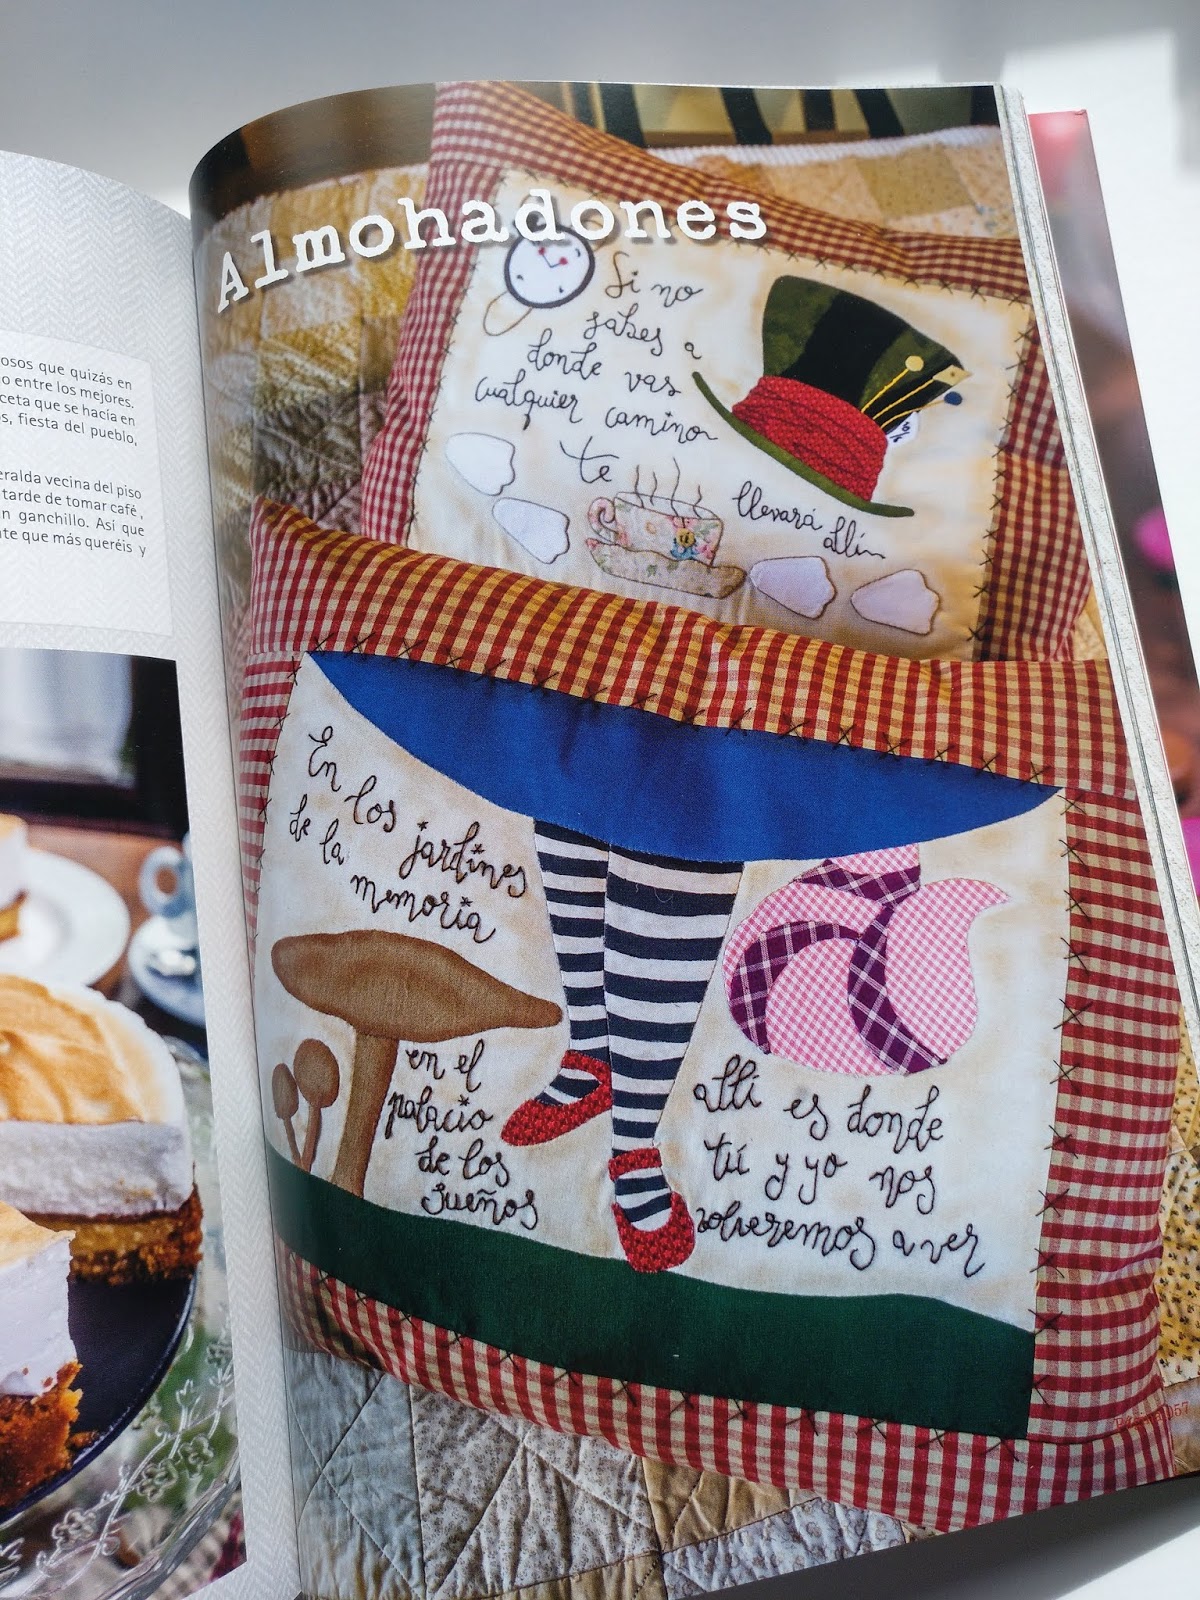 osos que quizás en
o entre los mejores.
ceta que se hacía en
os, fiesta del pueblo,
eralda vecina del piso
tarde de tomar café,
n ganchillo. Así que
nte que más queréis y
Almohadones
Si no
sabes a
donde vas
cualquier camino
te
llevará
allí
10/6
En los jardines
de la
memoria
en el
palacio
de los
sueños
allí es donde
tú y yo nos
volveremos a ver
057